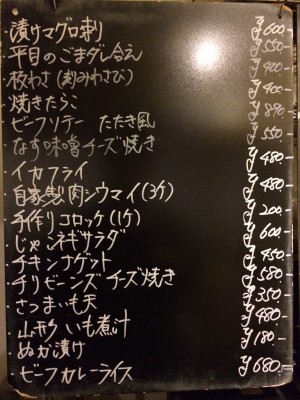 漬けマグロ刺 ¥600-
平目のごまダレ合え ¥550-
板わさ(刻みわさび) ¥400-
焼きたらこ ¥400-
ビーフソテー たたき風 ¥890-
なす味噌チーズ焼き ¥550-
イカフライ ¥480-
自家製肉シウマイ(3ケ) ¥480-
手作りコロッケ(1ケ) ¥200-
じゃこネギサラダ ¥600-
チキンナゲット ¥450-
チリビーンズ チーズ焼き ¥580-
さつまいも天 ¥350-
山形いも煮汁 ¥480-
ぬか漬け ¥180-
ビーフカレーライス ¥680-